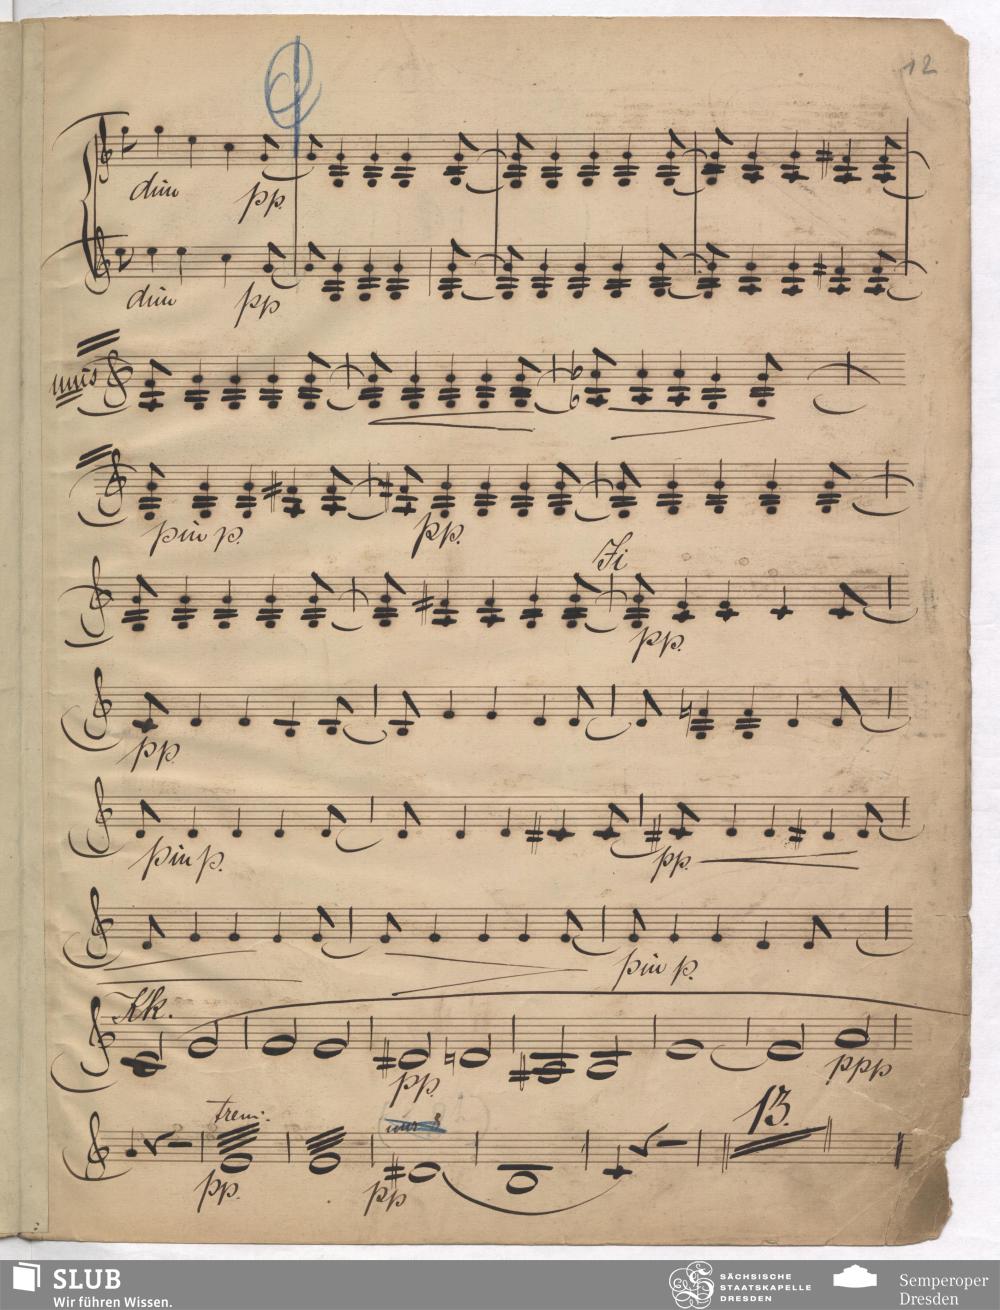 12
dim pp.
dim pp
unis
più p. pp.
Ii
pp.
pp
più p. pp.
più p.
Kk.
pp. ppp
trem:
pp. pp
13.
SLUB
Wir führen Wissen.
SÄCHSISCHE
STAATSKAPELLE
DRESDEN
Semperoper
Dresden